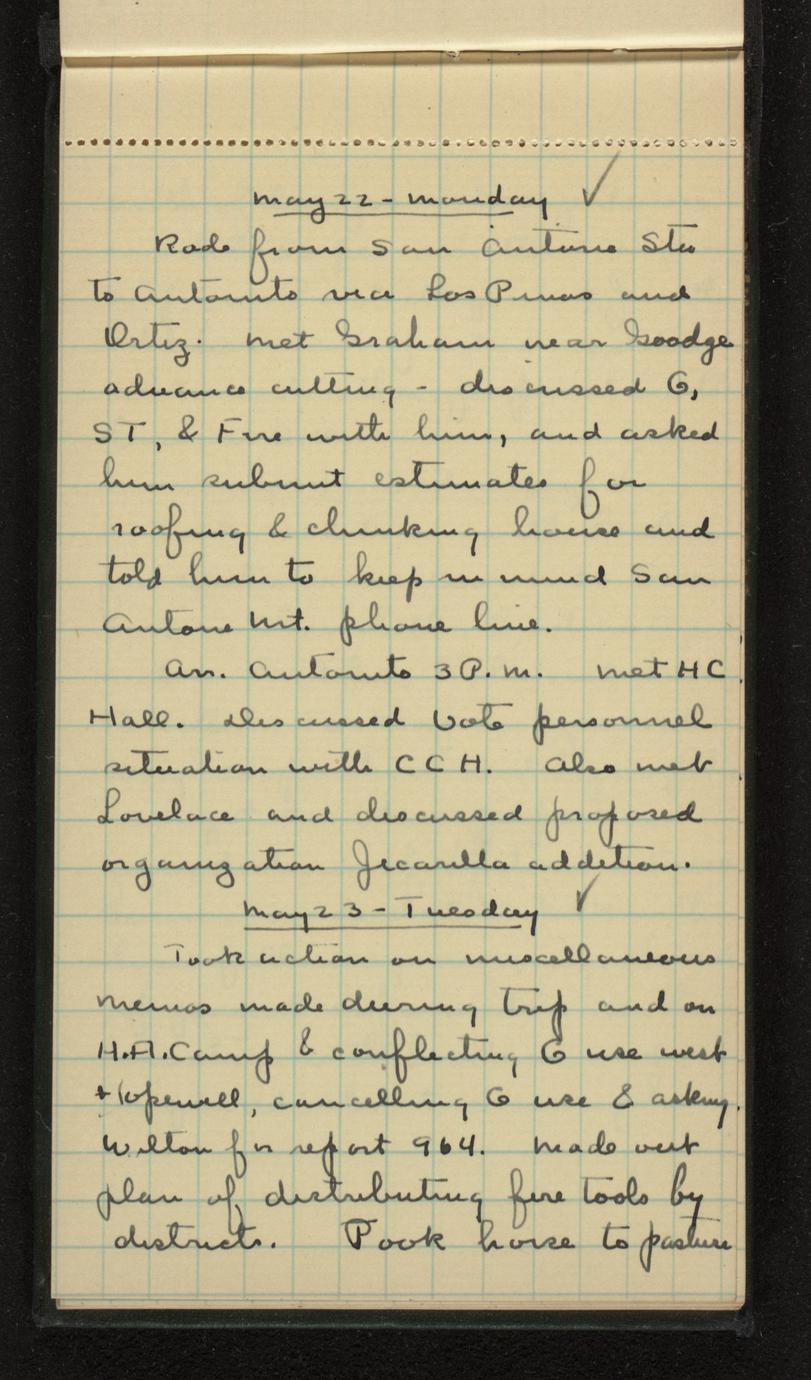 May 22 - Monday ✓
Rode from San Antone Sta
to Antonito via Los Pinos and
Ortiz. Met Graham near Goodge
advance cutting - discussed G,
ST, & Fire with him, and asked
him submit estimates for
roofing & chinking house and
told him to keep in mind San
Antone Mt. phone line.
Arr. Antonito 3 P.M. Met HC
Hall. Discussed Vote personnel
situation with CCH. Also met
Lovelace and discussed proposed
organization Jicarilla addition.
May 23 - Tuesday ✓
Took action on miscellaneous
memos made during trip and on
H.A. Camp & conflecting G use west
Hopewell, cancelling G use & asking
Wilton for report 964. Made out
plan of distributing fire tools by
districts. Took horse to pasture